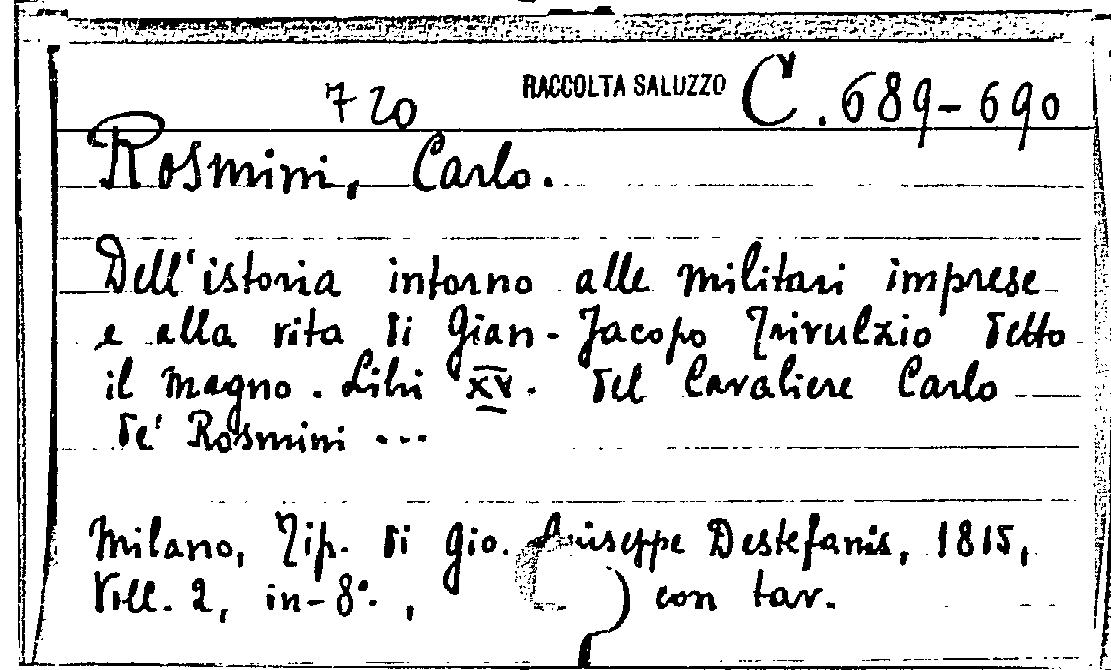 720 RACCOLTA SALUZZO C. 689-690
Rosmini, Carlo.
Dell'istoria intorno alle militari imprese
e alla vita di Gian-Jacopo Trivulzio detto
il Magno. Libri XV. del Cavaliere Carlo
de' Rosmini ...
Milano, Tip. di Gio. Giuseppe Destefanis, 1815,
Voll. 2, in-8°., con tav.